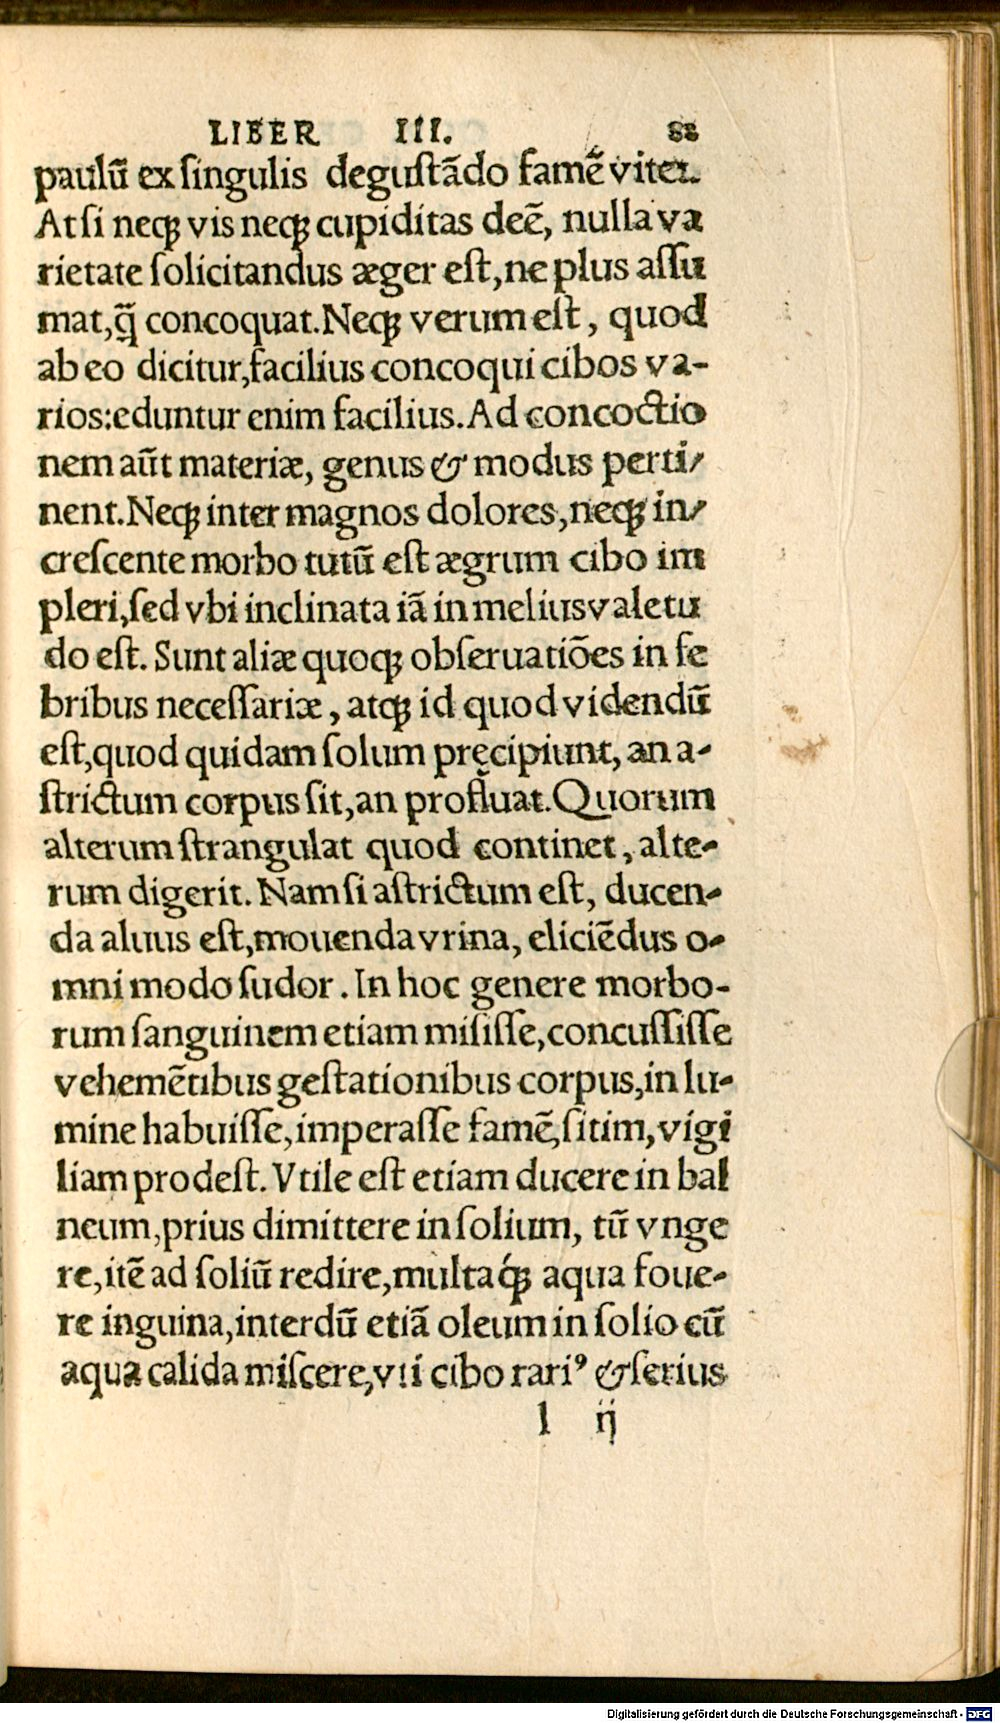 LIBER III. 88
paulū ex ſingulis deguſtādo famē vitet.
At ſi neqꝫ vis neqꝫ cupiditas deē, nulla va
rietate ſolicitandus æger eſt, ne plus aſſu
mat, q̄ concoquat. Neqꝫ verum eſt, quod
ab eo dicitur, facilius concoqui cibos va-
rios: eduntur enim facilius. Ad concoctio
nem aūt materiæ, genus & modus perti/
nent. Neqꝫ inter magnos dolores, neqꝫ in/
creſcente morbo tutū eſt ægrum cibo im
pleri, ſed vbi inclinata iā in melius valetu
do eſt. Sunt aliæ quoqꝫ obſeruatiōes in fe
bribus neceſſariæ, atqꝫ id quod videndū
eſt, quod quidam ſolum pręcipiunt, an a-
ſtrictum corpus ſit, an profluat. Quorum
alterum ſtrangulat quod continet, alte-
rum digerit. Nam ſi aſtrictum eſt, ducen-
da aluus eſt, mouenda vrina, eliciēdus o-
mni modo ſudor. In hoc genere morbo-
rum ſanguinem etiam miſiſſe, concuſſiſſe
vehemētibus geſtationibus corpus, in lu-
mine habuiſſe, imperaſſe famē, ſitim, vigi
liam prodeſt. Vtile eſt etiam ducere in bal
neum, prius dimittere in ſolium, tū vnge
re, itē ad ſoliū redire, multaqꝫ́ aqua foue-
re inguina, interdū etiā oleum in ſolio cū
aqua calida miſcere, vti cibo rariꝰ & ſerius
l ij
Digitalisierung gefördert durch die Deutsche Forschungsgemeinschaft - DFG